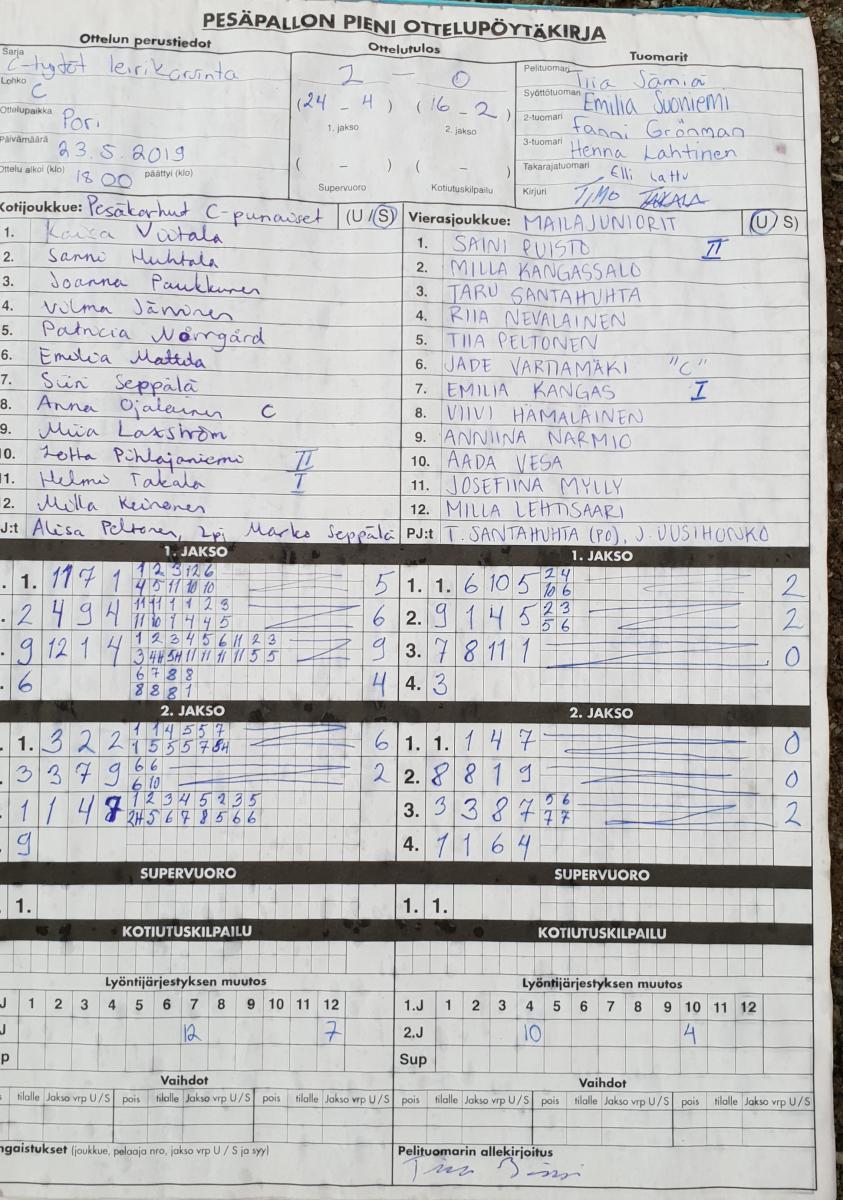 PESÄPALLON PIENI OTTELUPÖYTÄKIRJA
Ottelun perustiedot
Ottelutulos
Tuomarit
Sarja C-tytöt leirikarsinta
Lohko C
Ottelupaikka Pori
Päivämäärä 23.5.2019
Ottelu alkoi (klo) 18 00 päättyi (klo)
2 - 0
(24 - 4) (16 - 2)
1. jakso 2. jakso
( - ) ( - )
Supervuoro Kotiutuskilpailu
Pelituomari Tiia Sämiä
Syöttötuomari Emilia Suoniemi
2-tuomari Fanni Grönman
3-tuomari Henna Lahtinen
Takarajatuomari Elli Lattu
Kirjuri TIMO TAKALA
Kotijoukkue: Pesäkarhut C-punaiset (U/S)
1. Kaisa Viitala
2. Sanni Huhtala
3. Joanna Paukkunen
4. Vilma Järvinen
5. Patricia Norrgård
6. Emilia Mattila
7. Siiri Seppälä
8. Anna Ojalainen C
9. Miia Laxström
10. Lotta Pihlajaniemi II
11. Helmi Takala I
12. Milla Keinonen
PJ:t Alisa Peltonen, 2pj Marko Seppälä
Vierasjoukkue: MAILAJUNIORIT (U/S)
1. SAINI PUISTO II
2. MILLA KANGASSALO
3. TARU SANTAHUHTA
4. RIIA NEVALAINEN
5. TIIA PELTONEN
6. JADE VARTIAMÄKI "C"
7. EMILIA KANGAS I
8. VIIVI HÄMÄLÄINEN
9. ANNIINA NARMIO
10. AADA VESA
11. JOSEFIINA MYLLY
12. MILLA LEHTISAARI
PJ:t T. SANTAHUHTA (PO), J. UUSIHONKO
1. JAKSO
1. 11 7 1 5
2 4 9 4 6
9 12 1 4 9
6 4
1. JAKSO
1. 1. 6 10 5 2 4 10 6 2
2. 9 1 4 5 2 3 5 6 2
3. 7 8 11 1 0
4. 3
2. JAKSO
1. 3 2 2 6
3 3 7 9 6 6 6 10 2
1 1 4 8
9
2. JAKSO
1. 1. 1 4 7 0
2. 8 8 1 9 0
3. 3 3 8 7 5 6 7 7 2
4. 1 1 6 4
SUPERVUORO
1.
SUPERVUORO
1. 1.
KOTIUTUSKILPAILU
KOTIUTUSKILPAILU
Lyöntijärjestyksen muutos
J 1 2 3 4 5 6 7 8 9 10 11 12
J 12 7
p
Lyöntijärjestyksen muutos
1.J 1 2 3 4 5 6 7 8 9 10 11 12
2.J 10 4
Sup
Vaihdot
tilalle Jakso vrp U/S pois tilalle Jakso vrp U/S pois tilalle Jakso vrp U/S
Vaihdot
pois tilalle Jakso vrp U/S pois tilalle Jakso vrp U/S pois tilalle Jakso vrp U/S
ngaistukset (joukkue, pelaaja nro, jakso vrp U / S ja syy)
Pelituomarin allekirjoitus